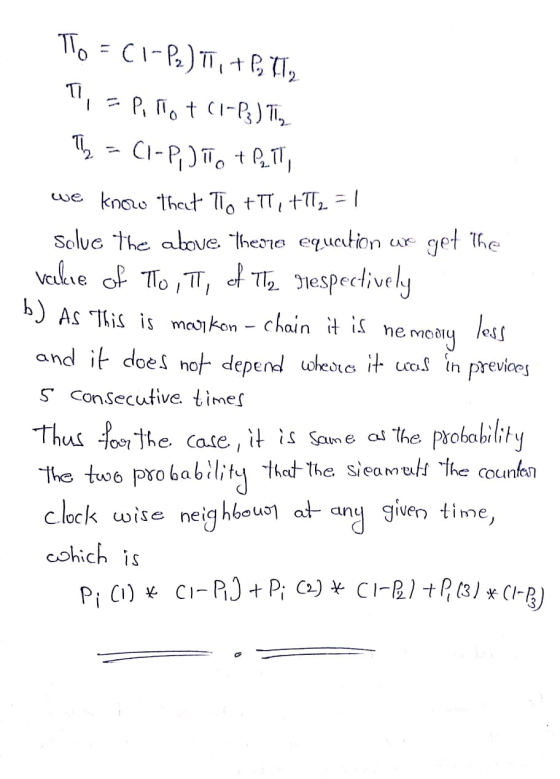 π₀ = (1-P₂)π₁ + P₃π₂
π₁ = P₁π₀ + (1-P₃)π₂
π₂ = (1-P₁)π₀ + P₂π₁
we know that π₀ + π₁ + π₂ = 1
solve the above theore equation we get the
value of π₀, π₁ & π₂ respectively
b) As This is markon - chain it is nemoory less
and it does not depend where it was in previoes
5 consecutive times
Thus for the case, it is same as the probability
the two probability that the the counter
clock wise neighbour at any given time,
which is
Pi (1) * (1-P₁) + Pi (2) * (1-P₂) + Pi (3) * (1-P₃)